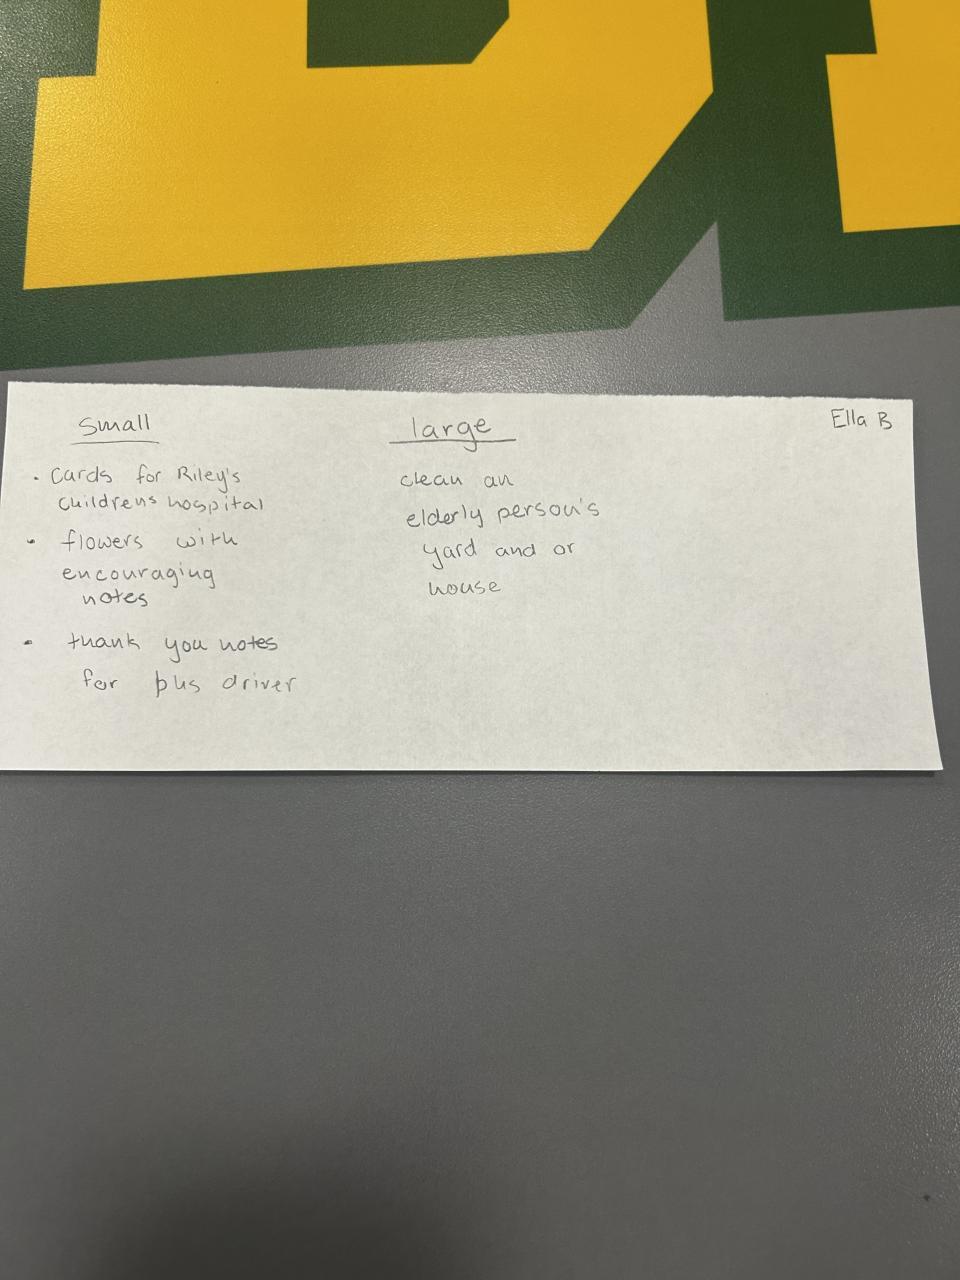 small
• Cards for Riley's
childrens hospital
• flowers with
encouraging
notes
• thank you notes
for bus driver
large
clean an
elderly person's
yard and or
house
Ella B